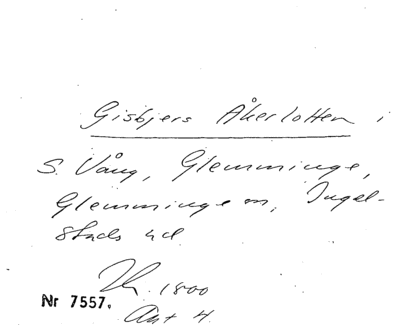 Gisbjers Åkerlotten i
S. Vång, Glemminge,
Glemminge sn, Ingel-
stads hd
1800
Nr 7557.
Akt 4